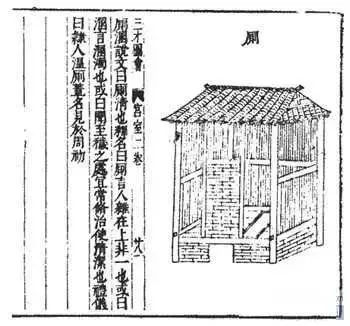 厠
三才圖會 宮室二卷 廿八
厠溷說文曰厠清也釋名曰厠言人雜在上非一也或曰
溷言溷濁也或曰圊至穢之處宜常修治使清潔也禮儀
曰隸人厠蓋名見於周初